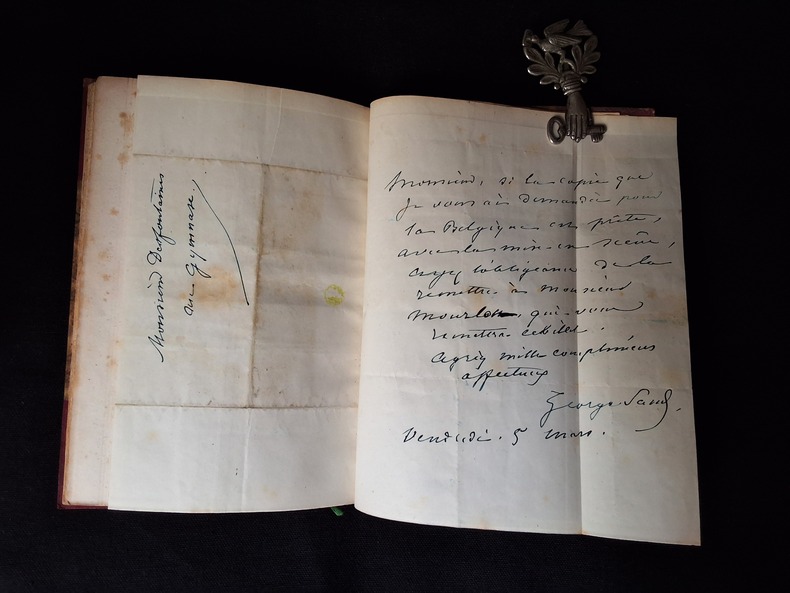 Monsieur Desfontaines
au Gymnase.
Monsieur, si la copie que
je vous ai demandée pour
la Belgique est prête,
avec la mise en scène,
ayez l'obligeance de la
remettre à Monsieur
Mourlon, qui vous
remettra ce billet.
Agréez mille compliments
affectueux
George Sand.
Vendredi. 5 mars.